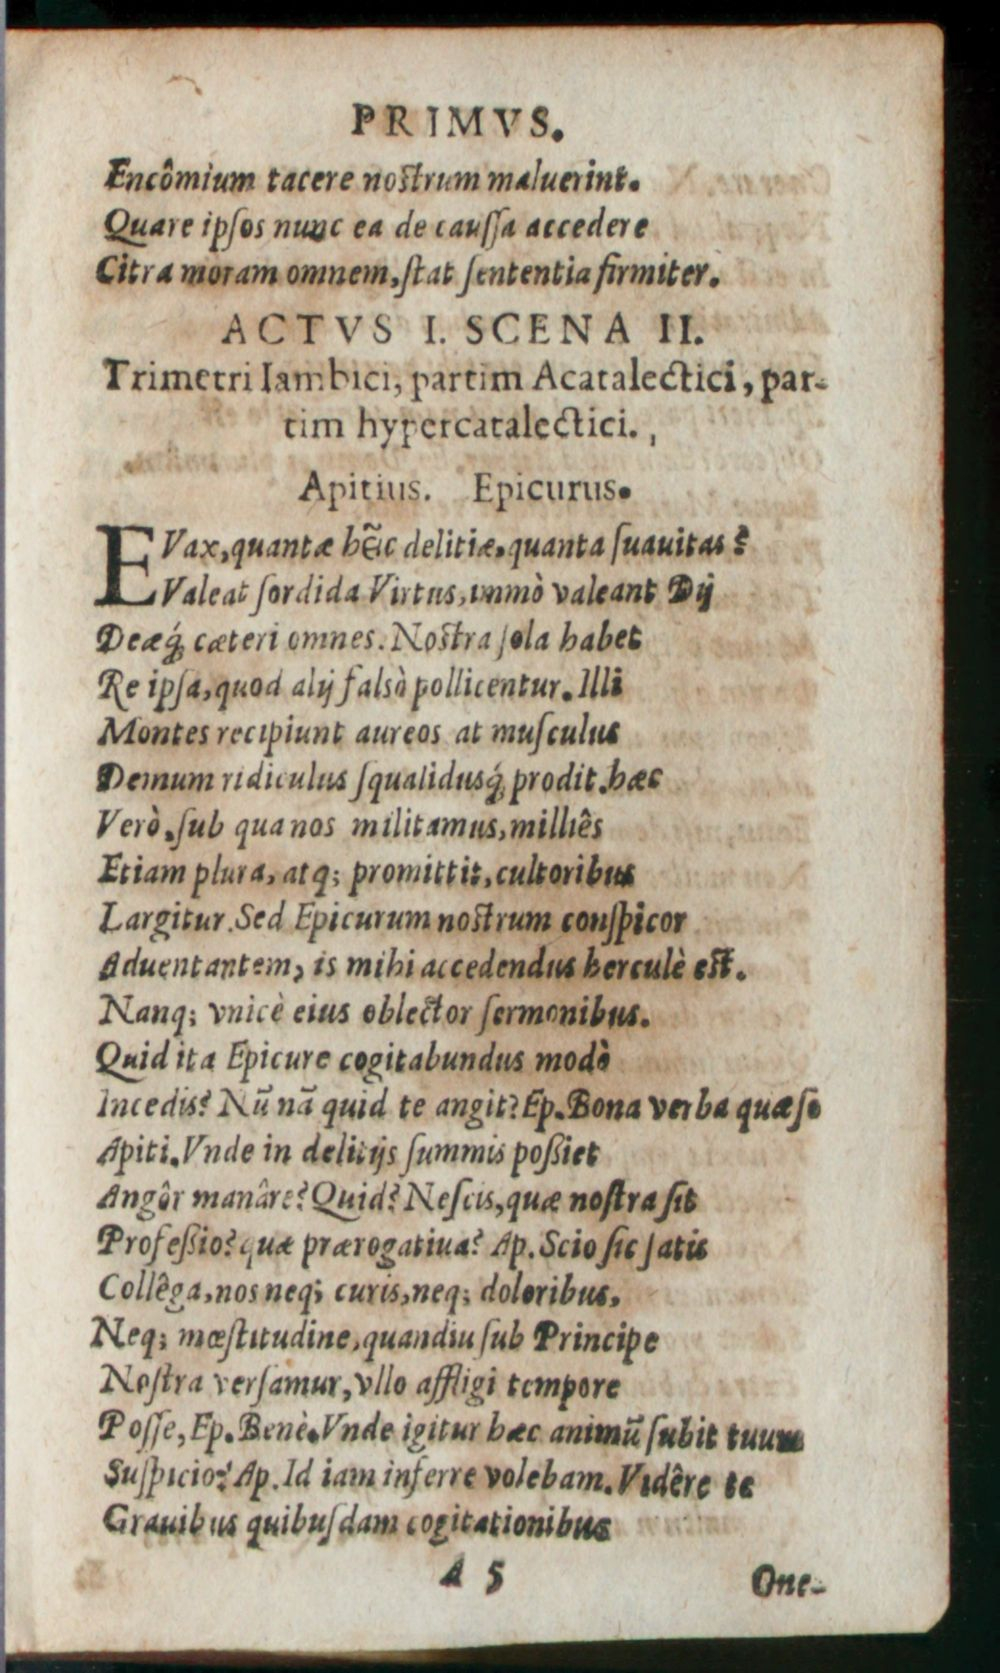 PRIMVS.
Encômium tacere nostrum maluerint.
Quare ipſos nunc ea de cauſſa accedere
Citra moram omnem, ſtat ſententia firmiter.
ACTVS I. SCENA II.
Trimetri Iambici, partim Acatalectici, par-
tim hypercatalectici.
Apitius. Epicurus.
EVax, quantæ hęc delitiæ. quanta ſuauitas?
Valeat ſordida Virtus, immò valeant Dij
Deæq́; cæteri omnes. Nostra ſola habet
Re ipſa, quod alij falsò pollicentur. Illi
Montes recipiunt aureos at muſculus
Demum ridiculus ſqualidusq́; prodit. hæc
Verò. ſub qua nos militamus, milliês
Etiam plura, atq; promittit, cultoribus
Largitur. Sed Epicurum nostrum conſpicor
Aduentantem, is mihi accedendus herculè est.
Nanq; vnicè eius oblector ſermonibus.
Quid ita Epicure cogitabundus modò
Incedis? Nũ nã quid te angit? Ep. Bona verba quæſo
Apiti. Vnde in delitijs ſummis poßiet
Angôr manâre? Quid? Neſcis, quæ noſtra ſit
Profeßio? quæ prærogatiua? Ap. Scio ſic ſatis
Collêga, nos neq; curis, neq; doloribus,
Neq; mœſtitudine, quandiu ſub Principe
Noſtra verſamur, vllo affligi tempore
Poſſe, Ep. Benè. Vnde igitur hæc animũ ſubit tuum
Suſpicio? Ap. Id iam inferre volebam. Vidêre te
Grauibus quibuſdam cogitationibus
A 5
One-